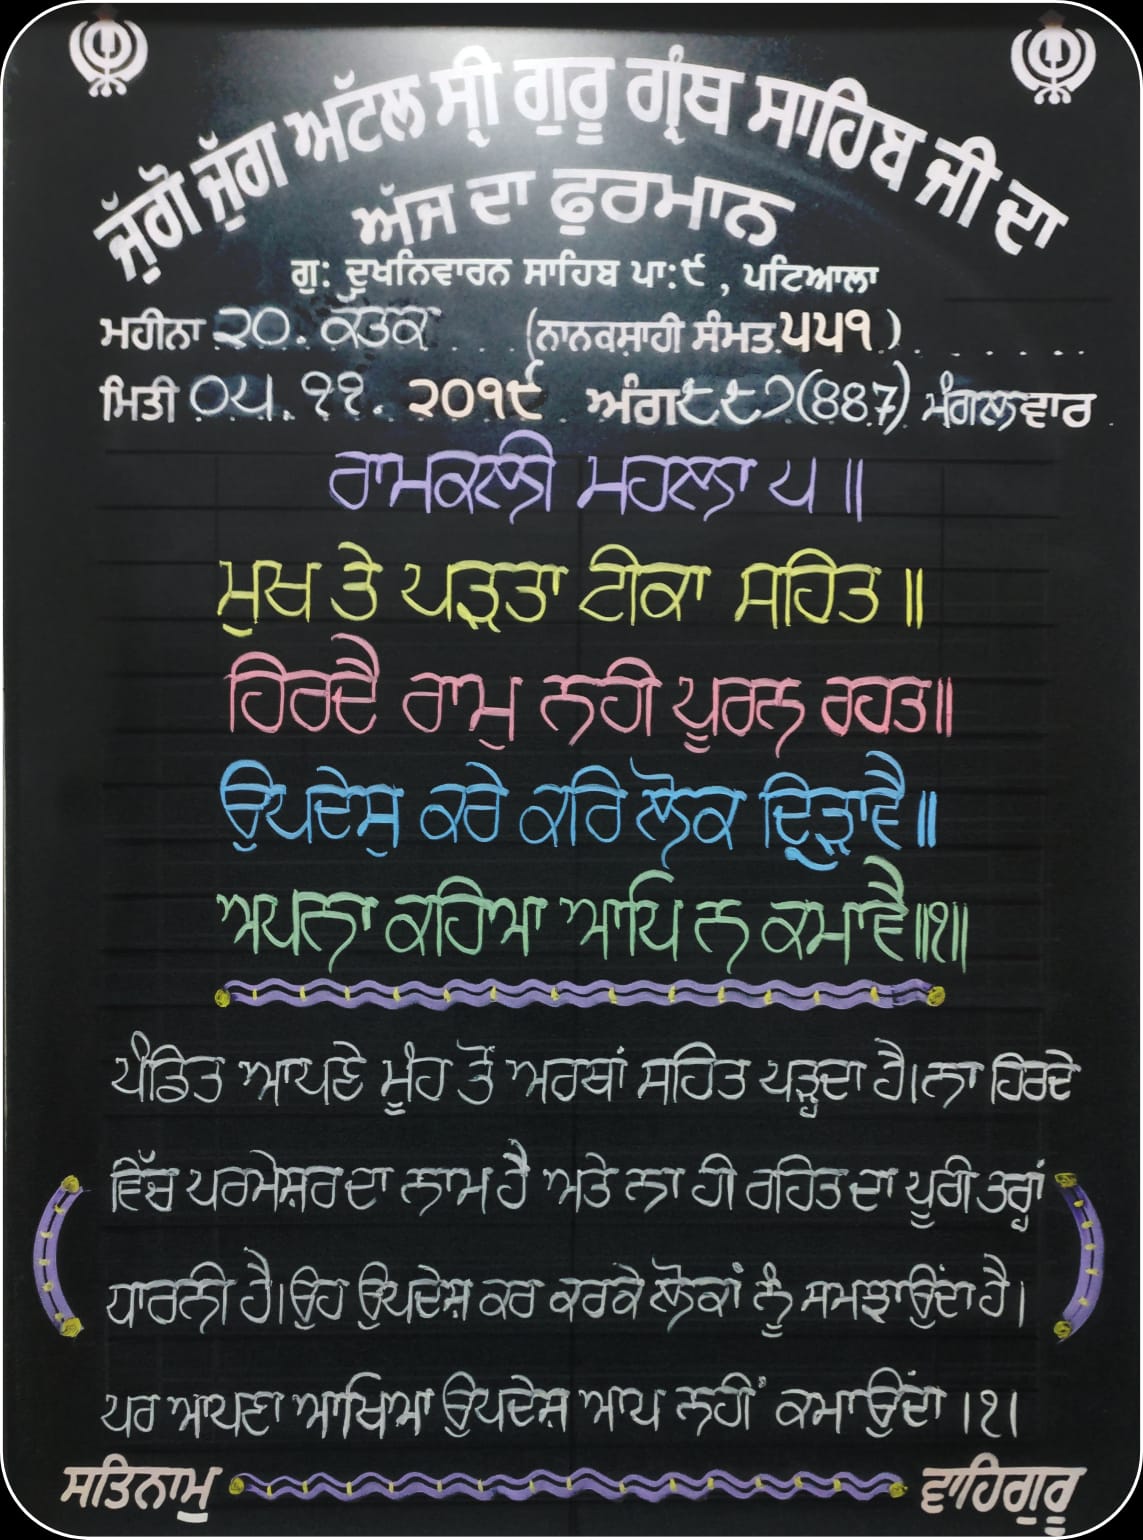 ਜੁੱਗੋ ਜੁੱਗ ਅਟੱਲ ਸ੍ਰੀ ਗੁਰੂ ਗ੍ਰੰਥ ਸਾਹਿਬ ਜੀ ਦਾ
ਅੱਜ ਦਾ ਫੁਰਮਾਨ
ਗੁ: ਦੂਖਨਿਵਾਰਨ ਸਾਹਿਬ ਪਾ:੯, ਪਟਿਆਲਾ
ਮਹੀਨਾ ੨੦. ਕੱਤਕ (ਨਾਨਕਸ਼ਾਹੀ ਸੰਮਤ ੫੫੧)
ਮਿਤੀ ੦੫. ੧੧. ੨੦੧੯ ਅੰਗ ੮੮੭(887) ਮੰਗਲਵਾਰ
ਰਾਮਕਲੀ ਮਹਲਾ ੫ ॥
ਮੁਖ ਤੇ ਪੜਤਾ ਟੀਕਾ ਸਹਿਤ ॥
ਹਿਰਦੈ ਰਾਮੁ ਨਹੀ ਪੂਰਨ ਰਹਤ॥
ਉਪਦੇਸੁ ਕਰੇ ਕਰਿ ਲੋਕ ਦ੍ਰਿੜਾਵੈ॥
ਅਪਨਾ ਕਹਿਆ ਆਪਿ ਨ ਕਮਾਵੈ॥੧॥
ਪੰਡਿਤ ਆਪਣੇ ਮੂੰਹ ਤੋਂ ਅਰਥਾਂ ਸਹਿਤ ਪੜ੍ਹਦਾ ਹੈ।ਨਾ ਹਿਰਦੇ
ਵਿੱਚ ਪਰਮੇਸ਼ਰ ਦਾ ਨਾਮ ਹੈ ਅਤੇ ਨਾ ਹੀ ਰਹਿਤ ਦਾ ਪੂਰੀ ਤਰ੍ਹਾਂ
ਧਾਰਨੀ ਹੈ।ਉਹ ਉਪਦੇਸ਼ ਕਰ ਕਰਕੇ ਲੋਕਾਂ ਨੂੰ ਸਮਝਾਉਂਦਾ ਹੈ।
ਪਰ ਆਪਣਾ ਆਖਿਆ ਉਪਦੇਸ਼ ਆਪ ਨਹੀਂ ਕਮਾਉਂਦਾ ।੧।
ਸਤਿਨਾਮੁ ਵਾਹਿਗੁਰੂ